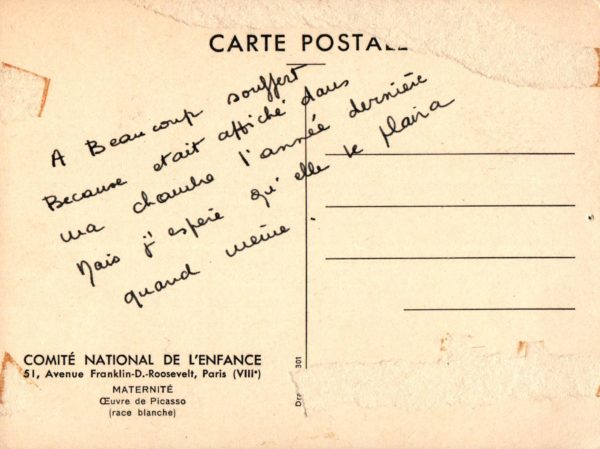 CARTE POSTALE
A Beaucoup souffert
Because etait affiché dans
ma chambre l'année dernière
Mais j'espère qu'elle te plaira
quand même.
COMITÉ NATIONAL DE L'ENFANCE
51, Avenue Franklin-D.-Roosevelt, Paris (VIIIᵉ)
MATERNITÉ
Œuvre de Picasso
(race blanche)
301